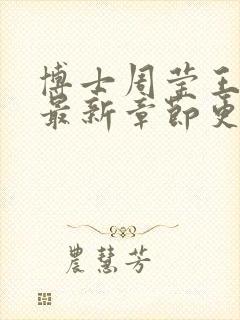 博士周莹王
最新章節更
農慧芳